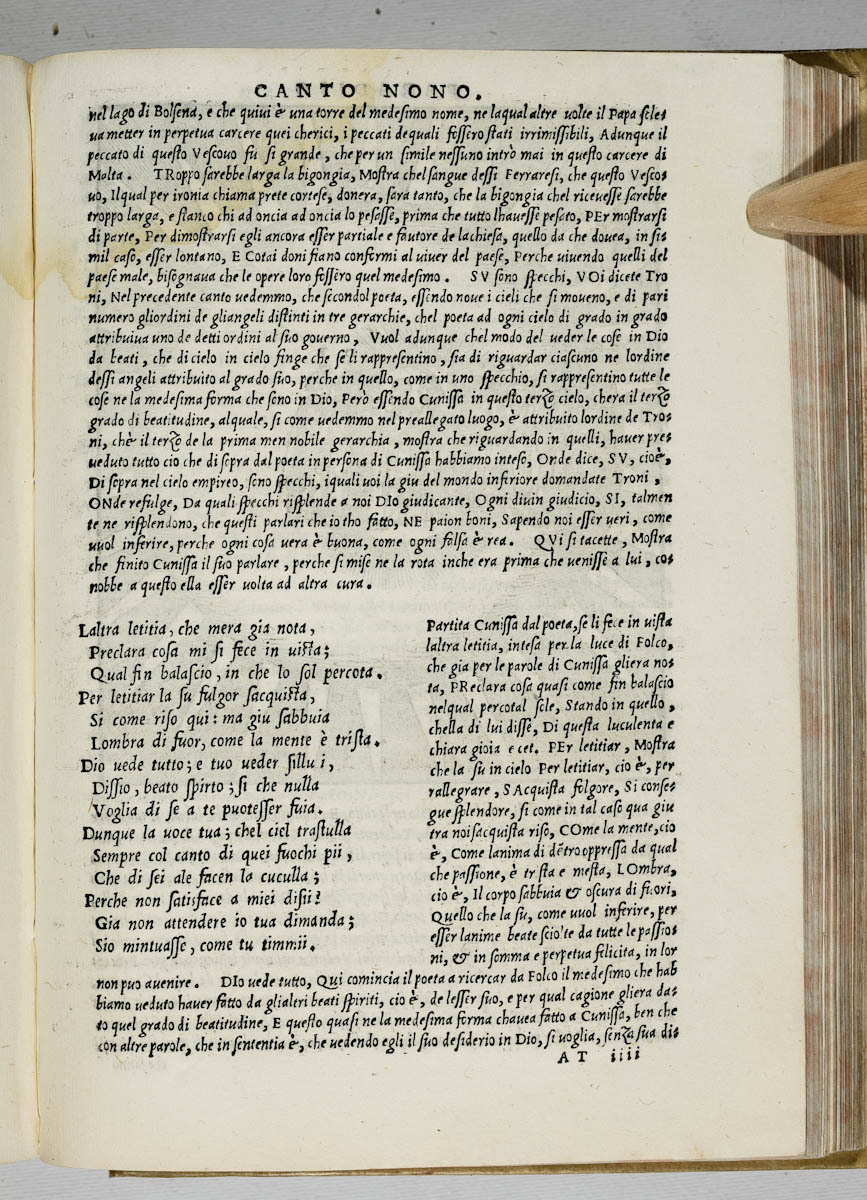 CANTO NONO.
nel lago di Bolsena, e che quivi è una torre del medesimo nome, ne laqual altre volte il Papa soles
ua metter in perpetua carcere quei cherici, i peccati dequali fossero stati irrimissibili, Adunque il
peccato di questo Vescouo fu si grande, che per un simile nessuno intrò mai in questo carcere di
Malta. TRoppo sarebbe larga la bigongia, Mostra chel sangue dessi Ferraresi, che questo Vesco-
uo, Ilqual per ironia chiama prete cortese, donera, sara tanto, che la bigongia chel riceuesse sarebbe
troppo larga, e stanco chi ad oncia ad oncia lo pesasse, prima che tutto lhauesse pesato, PEr mostrarsi
di parte, Per dimostrarsi egli ancora esser partiale e fautore de la chiesa, quello da che douea, in si-
mil caso, esser lontano, E Cotai doni fiano conformi al uiuer del paese, Perche uiuendo quelli del
paese male, bisognaua che le opere loro fossero quel medesimo. SV sono specchi, VOi dicete Tro
ni, Nel precedente canto uedemmo, che secondol poeta, essendo noue i cieli che si moueno, e di pari
numero gliordini de gliangeli distinti in tre gerarchie, chel poeta ad ogni cielo di grado in grado
attribuiua uno de detti ordini al suo gouerno, Vuol adunque chel modo del ueder le cose in Dio
da beati, che di cielo in cielo finge che se li rappresentino, sia di riguardar ciascuno ne lordine
dessi angeli attribuito al grado suo, perche in quello, come in uno specchio, si rappresentino tutte le
cose ne la medesima forma che sono in Dio, Però essendo Cunissa in questo terzo cielo, chera il terzo
grado di beatitudine, alquale, si come uedemmo nel preallegato luogo, è attribuito lordine de Tro-
ni, chè il terzo de la prima men nobile gerarchia, mostra che riguardando in quelli, hauer pre-
ueduto tutto cio che di sopra dal poeta in persona di Cunissa habbiamo inteso, Onde dice, SV, cioè,
Di sopra nel cielo empireo, sono specchi, iquali uoi la giu del mondo inferiore domandate Troni,
ONde refulge, Da quali specchi risplende a noi DIo giudicante, Ogni diuin giudicio, SI, talmen
te ne risplendono, che questi parlari che io tho fatto, NE paion boni, Sapendo noi esser ueri, come
uuol inferire, perche ogni cosa uera è buona, come ogni falsa è rea. QVi si tacette, Mostra
che finito Cunissa il suo parlare, perche si mise ne la rota inche era prima che uenisse a lui, co-
nobbe a questo ella esser uolta ad altra cura.
Laltra letitia, che mera gia nota,
Preclara cosa mi si fece in uista;
Qual fin balascio, in che lo sol percota.
Per letitiar la su fulgor sacquista,
Si come riso qui: ma giu sabbuia
Lombra di fuor, come la mente è trista.
Dio uede tutto; e tuo ueder sillui,
Dissio, beato spirto; si che nulla
Voglia di se a te puotesser fuia.
Dunque la uoce tua; chel ciel trastulla
Sempre col canto di quei fuochi pii,
Che di sei ale facen la cuculla;
Perche non satisface a miei disii?
Gia non attendere io tua dimanda;
Sio mintuasse, come tu timmii.
Partita Cunissa dal poeta, se li fece in uista
laltra letitia, intesa per la luce di Folco,
che gia per le parole di Cunissa gliera no-
ta, PReclara cosa quasi come fin balascio
nelqual percotal sole, Stando in quello,
chella di lui disse, Di questa luculenta e
chiara gioia e cet. PEr letitiar, Mostra
che la su in cielo Per letitiar, cio è, per
rallegrare, SAcquista folgore, Si conse-
gue splendore, si come in tal caso qua giu
tra noi sacquista riso, COme la mente, cio
è, Come lanima di dētro oppressa da qual
che passione, è trista e mesta, LOmbra,
cio è, Il corpo sabbuia & oscura di fuori,
Quello che la su, come uuol inferire, per
esser lanime beate sciolte da tutte le passio-
ni, & in somma e perpetua felicita, in lor
non puo auenire. DIo uede tutto, Qui comincia il poeta a ricercar da Folco il medesimo che hab
biamo ueduto hauer fatto da glialtri beati spiriti, cio è, de lesser suo, e per qual cagione gliera da-
to quel grado di beatitudine, E questo quasi ne la medesima forma chauea fatto a Cunissa, ben che
con altre parole, che in sententia è, che uedendo egli il suo desiderio in Dio, si uoglia, senza sua di-
AT iiii